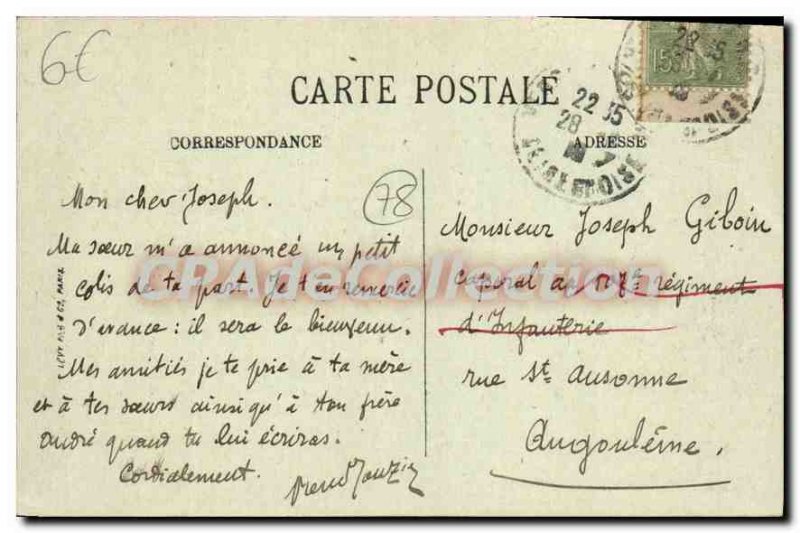 6€
CARTE POSTALE
CORRESPONDANCE
ADRESSE
15
22 15
28
22 15
SEINE ET OISE
78
Mon cher Joseph.
Ma sœur m'a annoncé un petit
colis de ta part. Je t'en remercie
d'avance : il sera le bienvenu.
Mes amitiés je te prie à ta mère
et à tes sœurs ainsi qu'à ton frère
André quand tu lui écriras.
Cordialement.
Monsieur Joseph Giboin
caporal au 107e régiment
d'Infanterie
rue St Ausonne
Angoulême.
LEVY FILS & Cie, PARIS
CPAdeCollection